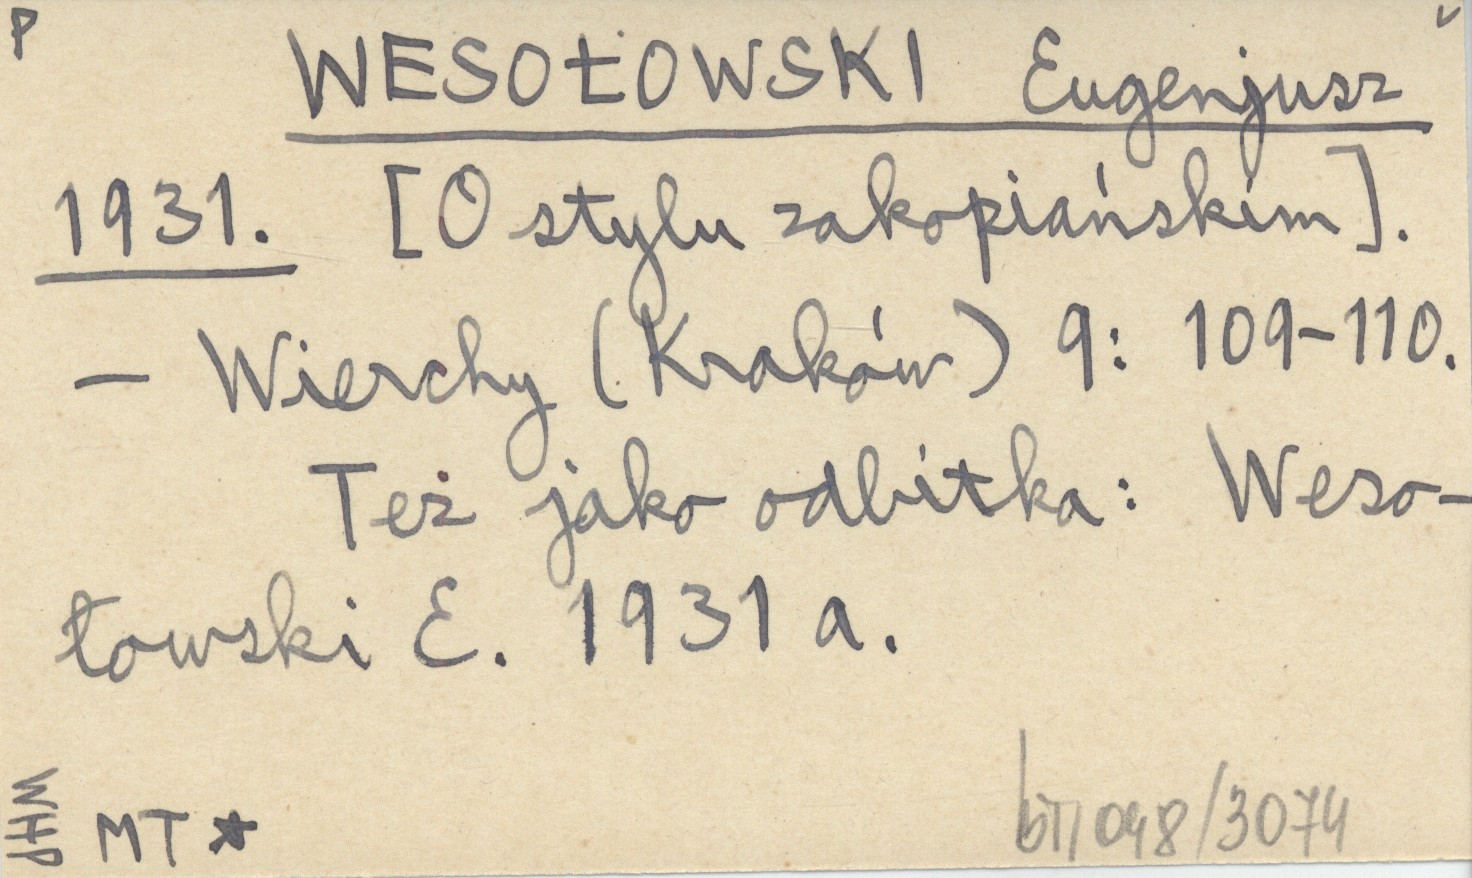 P
WESOŁOWSKI Eugenjusz
1931. [O stylu zakopiańskim].
— Wierchy (Kraków) 9: 109-110.
Też jako odbitka: Weso-
łowski E. 1931 a.
WHP
MT *
048/3074